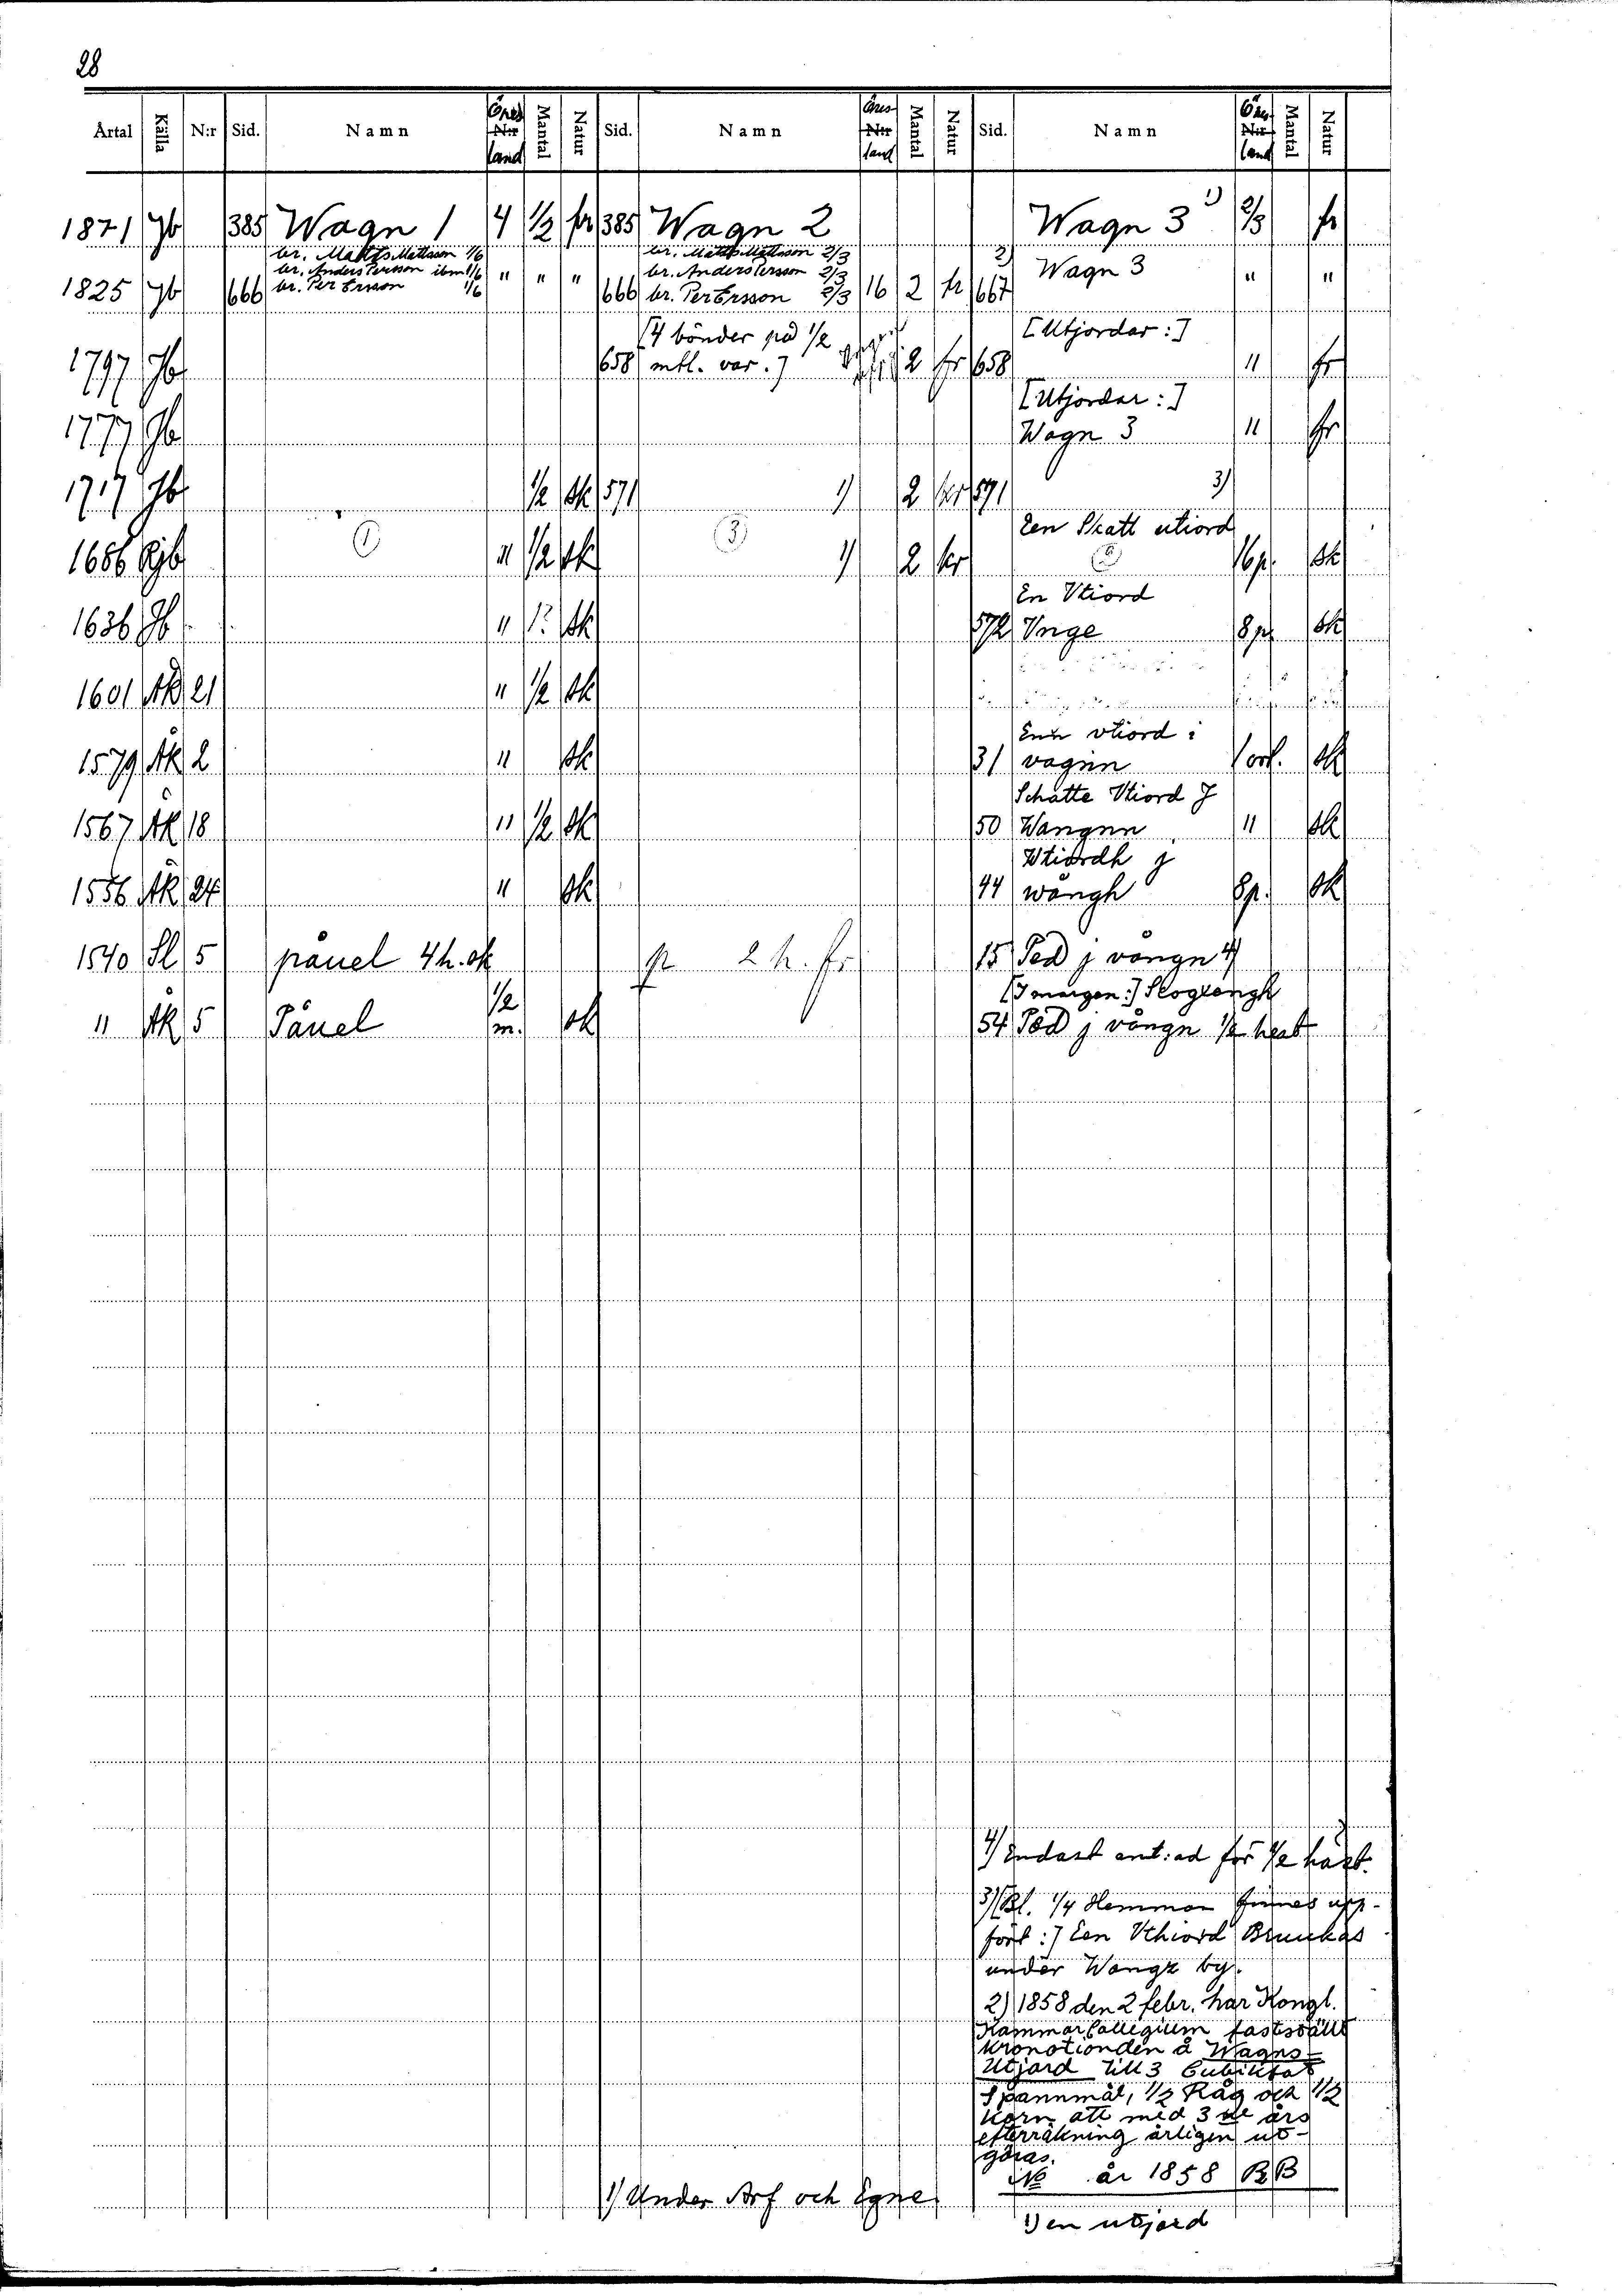 28
Årtal Källa N:r Sid. Namn Öres land Mantal Natur Sid. Namn Öres land Mantal Natur Sid. Namn Öres land Mantal Natur
1871 Jb 385 Wagn 1 4 1/2 fr 385 Wagn 2 Wagn 3 1) 2/3 fr
br. Matts Mattsson 1/6 br. Matts Mattsson 2/3
br. Anders Persson ibm 1/6 " " " br. Anders Persson 2/3 2) Wagn 3 " "
1825 Jb 666 br. Per Ersson 1/6 666 br. Per Ersson 2/3 16 2 fr 667
[4 bönder på 1/2 [Utjordar :]
1797 Jb 658 mtl. var.] 2 fr 658 " fr
[Utjordar :]
1777 Jb Wagn 3 " fr
1717 Jb 1/2 sk 571 1) 2 fr 571 3)
Een Skatt utiord
1686 Jb 1 " 1/2 sk 3 1) 2 fr 16p. sk
En Vtiord
1636 Jb " sk 572 Vnge 8p sk
1601 Äk 21 " 1/2 sk
Enn vtiord i
1579 Äk 2 " sk 31 vagnn 1 ort. sk
Schatte Vtiord J
1567 Äk 18 " 1/2 sk 50 Wangnn " sk
Vtiordh j
1556 Äk 24 " sk 44 wångh 8p. sk
1540 Sl 5 påuel 4 h. sk p 2 h. fr 15 Ped j vongn 4)
1/2 [J margen:] Skogxengh
" Äk 5 Påuel m. sk 54 Ped j vångn 1/2 hest
4) Endast ant:ad för 1/2 häst.
3) [Bl. 1/4 Hemman finnes upp-
fört :] Een Vthiord Brunkas
under Wongz by.
2) 1858 den 2 febr. har Kongl.
Kammar Collegium fastställt
kronotionden å Wagns
Utjord till 3 Cubikfot
Spannmål, 1/2 Råg och 1/2
Korn att med 3 ne års
efterräkning årligen ut-
göras.
No år 1858 BB
1) Under Arf och Egne
1) en utjord